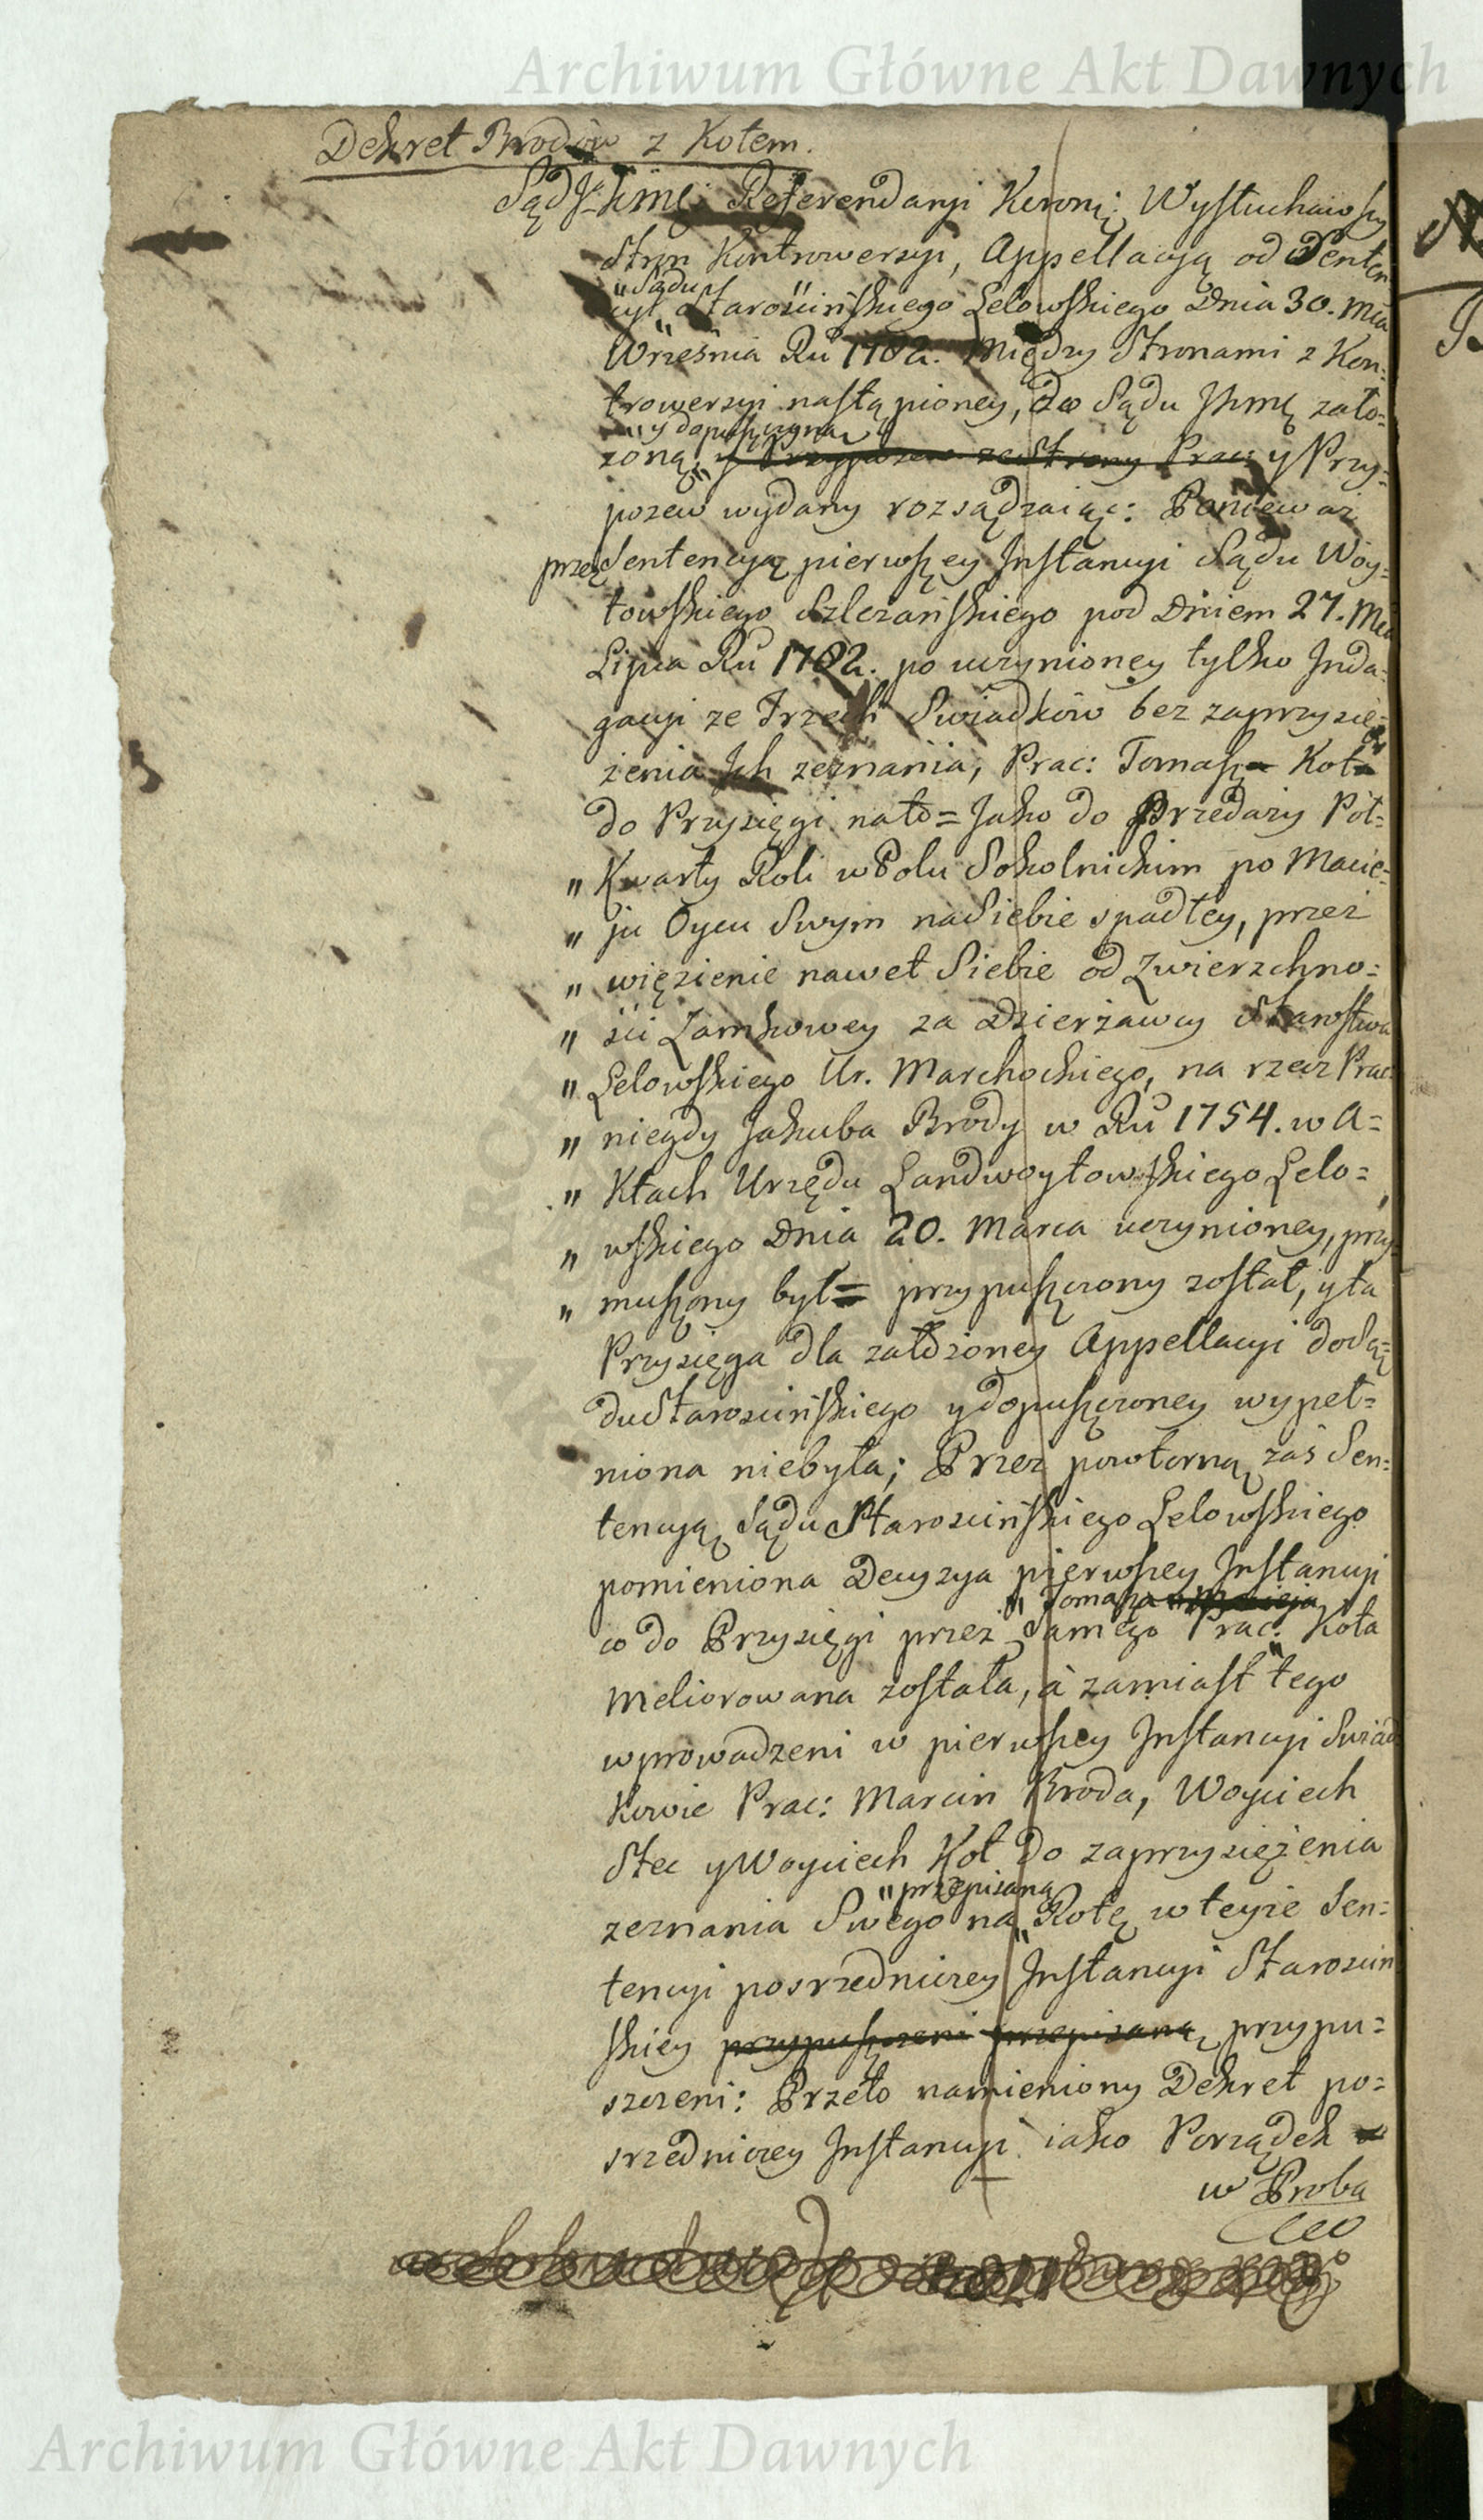 Archiwum Główne Akt Dawnych
Dekret Brodów z Kołem.
Sąd JKMci Referendaryi Koronị: Wysłuchawszy
Stron Kontrowersyi, Appellacyą od Senten
cyi "Sądu" Starościńskiego Lelowskiego Dnia 30. Mca
Września Ru 1782. Między Stronami z Kon=
trowersyi nastąpioney, do Sądu JKMci zało=
żoną; "y dopuszczyną" y Przypozew ze Strony Prac: y Przy=
pozew wydany rozsądzaiąc: Ponieważ
przez Sentencyą pierwszey Instancyi Sądu Woy=
towskiego Szlezańskiego pod Dniem 27. Mca
Lipca Ru 1782. po uczynioney tylko Inda=
gacyi ze Trzech Swiadków bez zaprzysię=
żenia Ich zeznania, Prac: Tomasz Koł
do Przysięgi na to= Jako do Przedaży Poł=
" Kwarty Roli w Polu Sokolnickim po Macie=
" ju Oycu Swym na Siebie spadłey, przez
" więzienie nawet Siebie od Zwierzchno=
" ści Zamkowey za Dzierżawcy Starostwa
" Lelowskiego Ur. Marchockiego, na rzecz Prac:
" niegdy Jakuba Brody w Ru 1754. w A=
" ktach Urzędu Landwoytowskiego Lelo=
" wskiego Dnia 20. Marca uczynioney, przy
" muszony był= przypuszczony został, y ta
Przysięga dla założoney Appellacyi do Są=
du Starościńskiego y dopuszczoney wypeł=
niona niebyła; Przez powtorną zaś Sen=
tencyą Sądu Starościńskiego Lelowskiego
pomieniona Decyzya pierwszey Instancyi
co do Przysięgi przez samego "Tomasza Macieja" Prac: Koła
meliorowana została, à zamiast tego
wprowadzeni w pierwszey Instancyi Swiad
kowie Prac: Marcin Broda, Woyciech
Stec y Woyciech Koł do zaprzysiężenia
zeznania Swego na "przepisaną" Rotę w teyże Sen=
tencyi posrzedniczey Instancyi Starościn
skiey przypuszczeni przepisaną przypu=
szczeni: Przeto namieniony Dekret po=
srzedniczey Instancyi iako Porządek
w Proba
Archiwum Główne Akt Dawnych